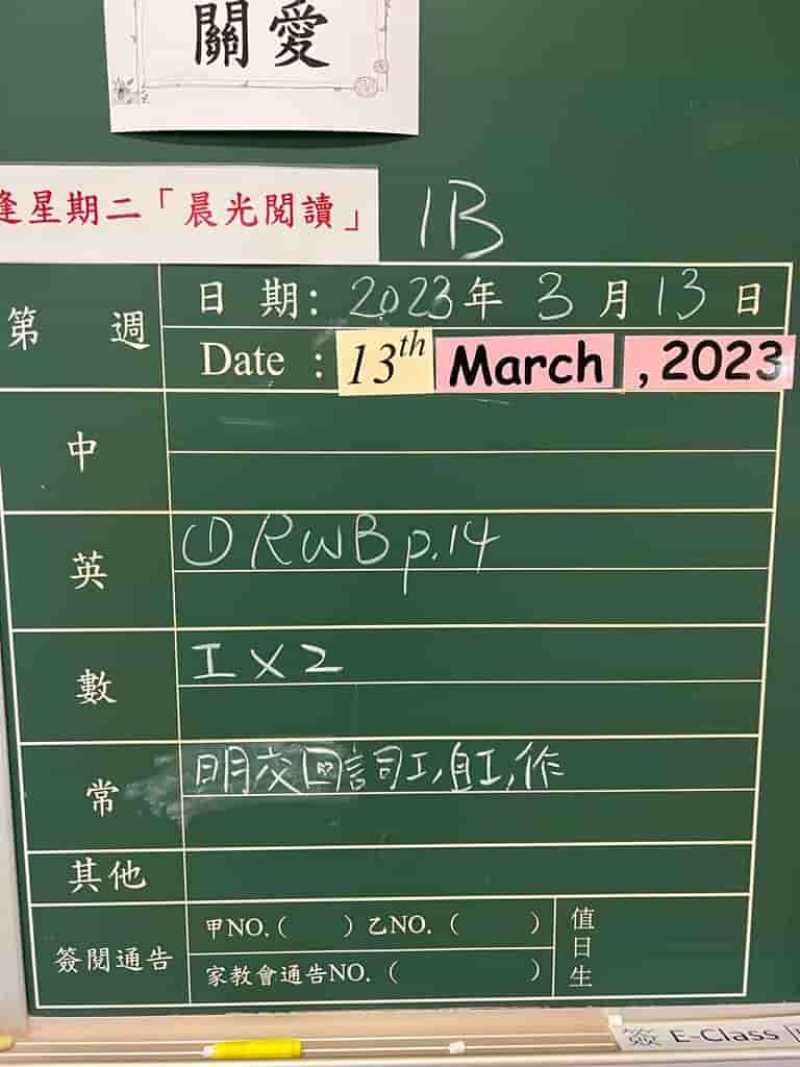 關愛
逢星期二「晨光閱讀」
1B
第 週
日 期: 2023年 3月13日
Date : 13th March , 2023
中
英
① RWB p.14
數
工 X 2
常
明交回詞工,自工,作
其他
簽閱通告
甲NO.( ) 乙NO. ( )
家教會通告NO. ( )
值日生
簽 E-Class